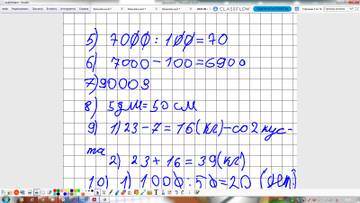 CLASSFLOW
5) 7000 : 100 = 70
6) 7000 - 100 = 6900
7) 90009
8) 5дм = 50 см
9) 1) 23 - 7 = 16 (кг) - со 2 кус-
та
2) 23 + 16 = 39 (кг)
10) 1) 1000 : 50 = 20 (деп.)